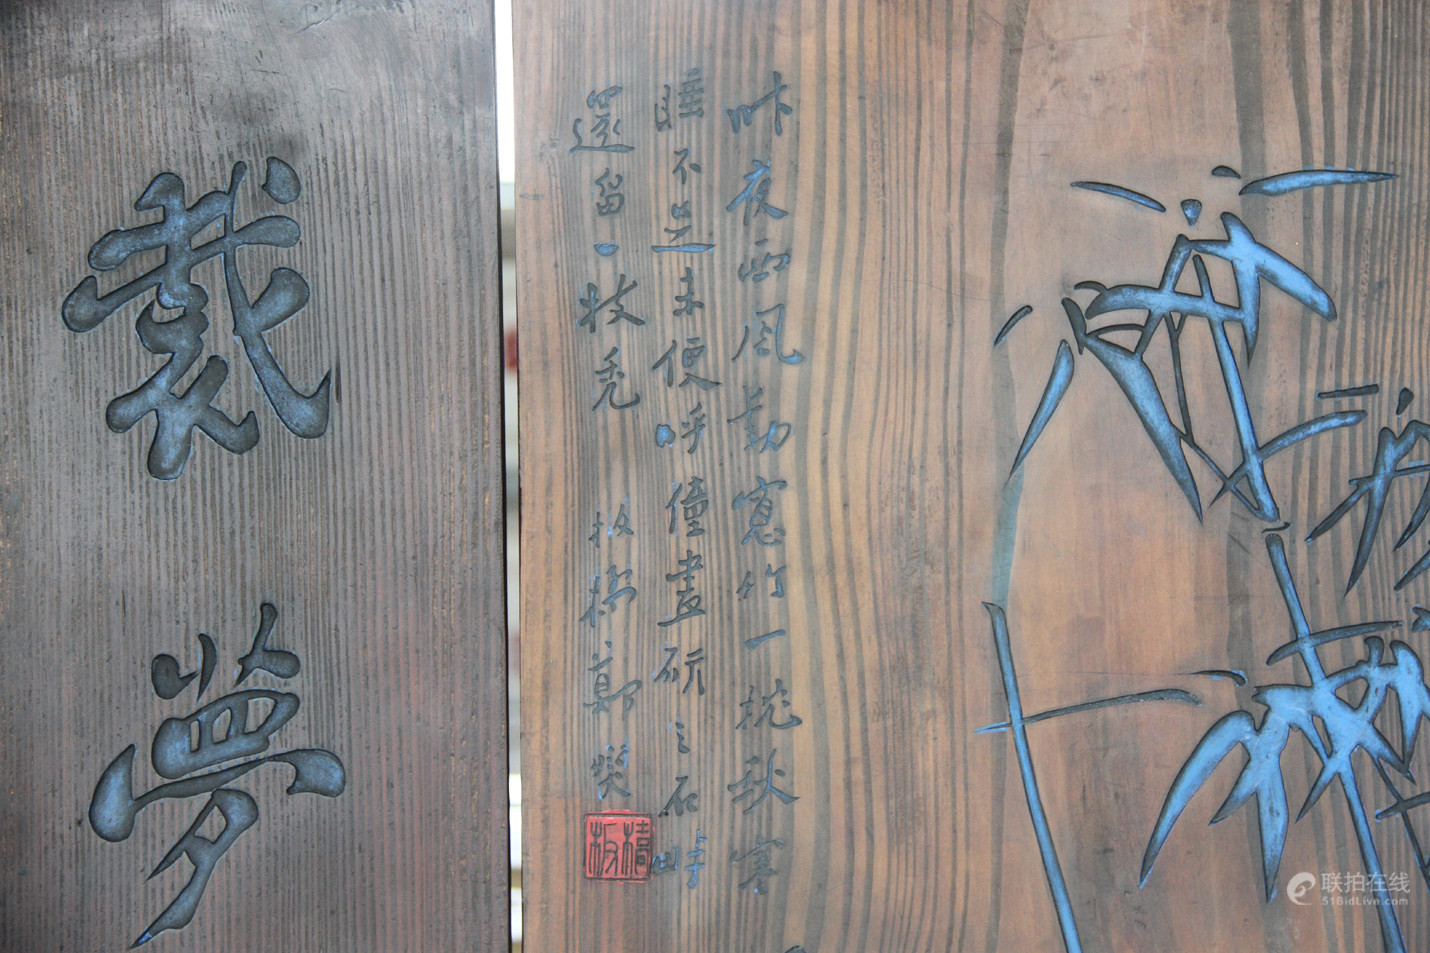 昨夜西風動窓竹一枕秋寒
睡不足未便呼僮畫研之石畔
還留一枝禿 板橋鄭燮
板橋
裁夢
联拍在线
51BidLive.com